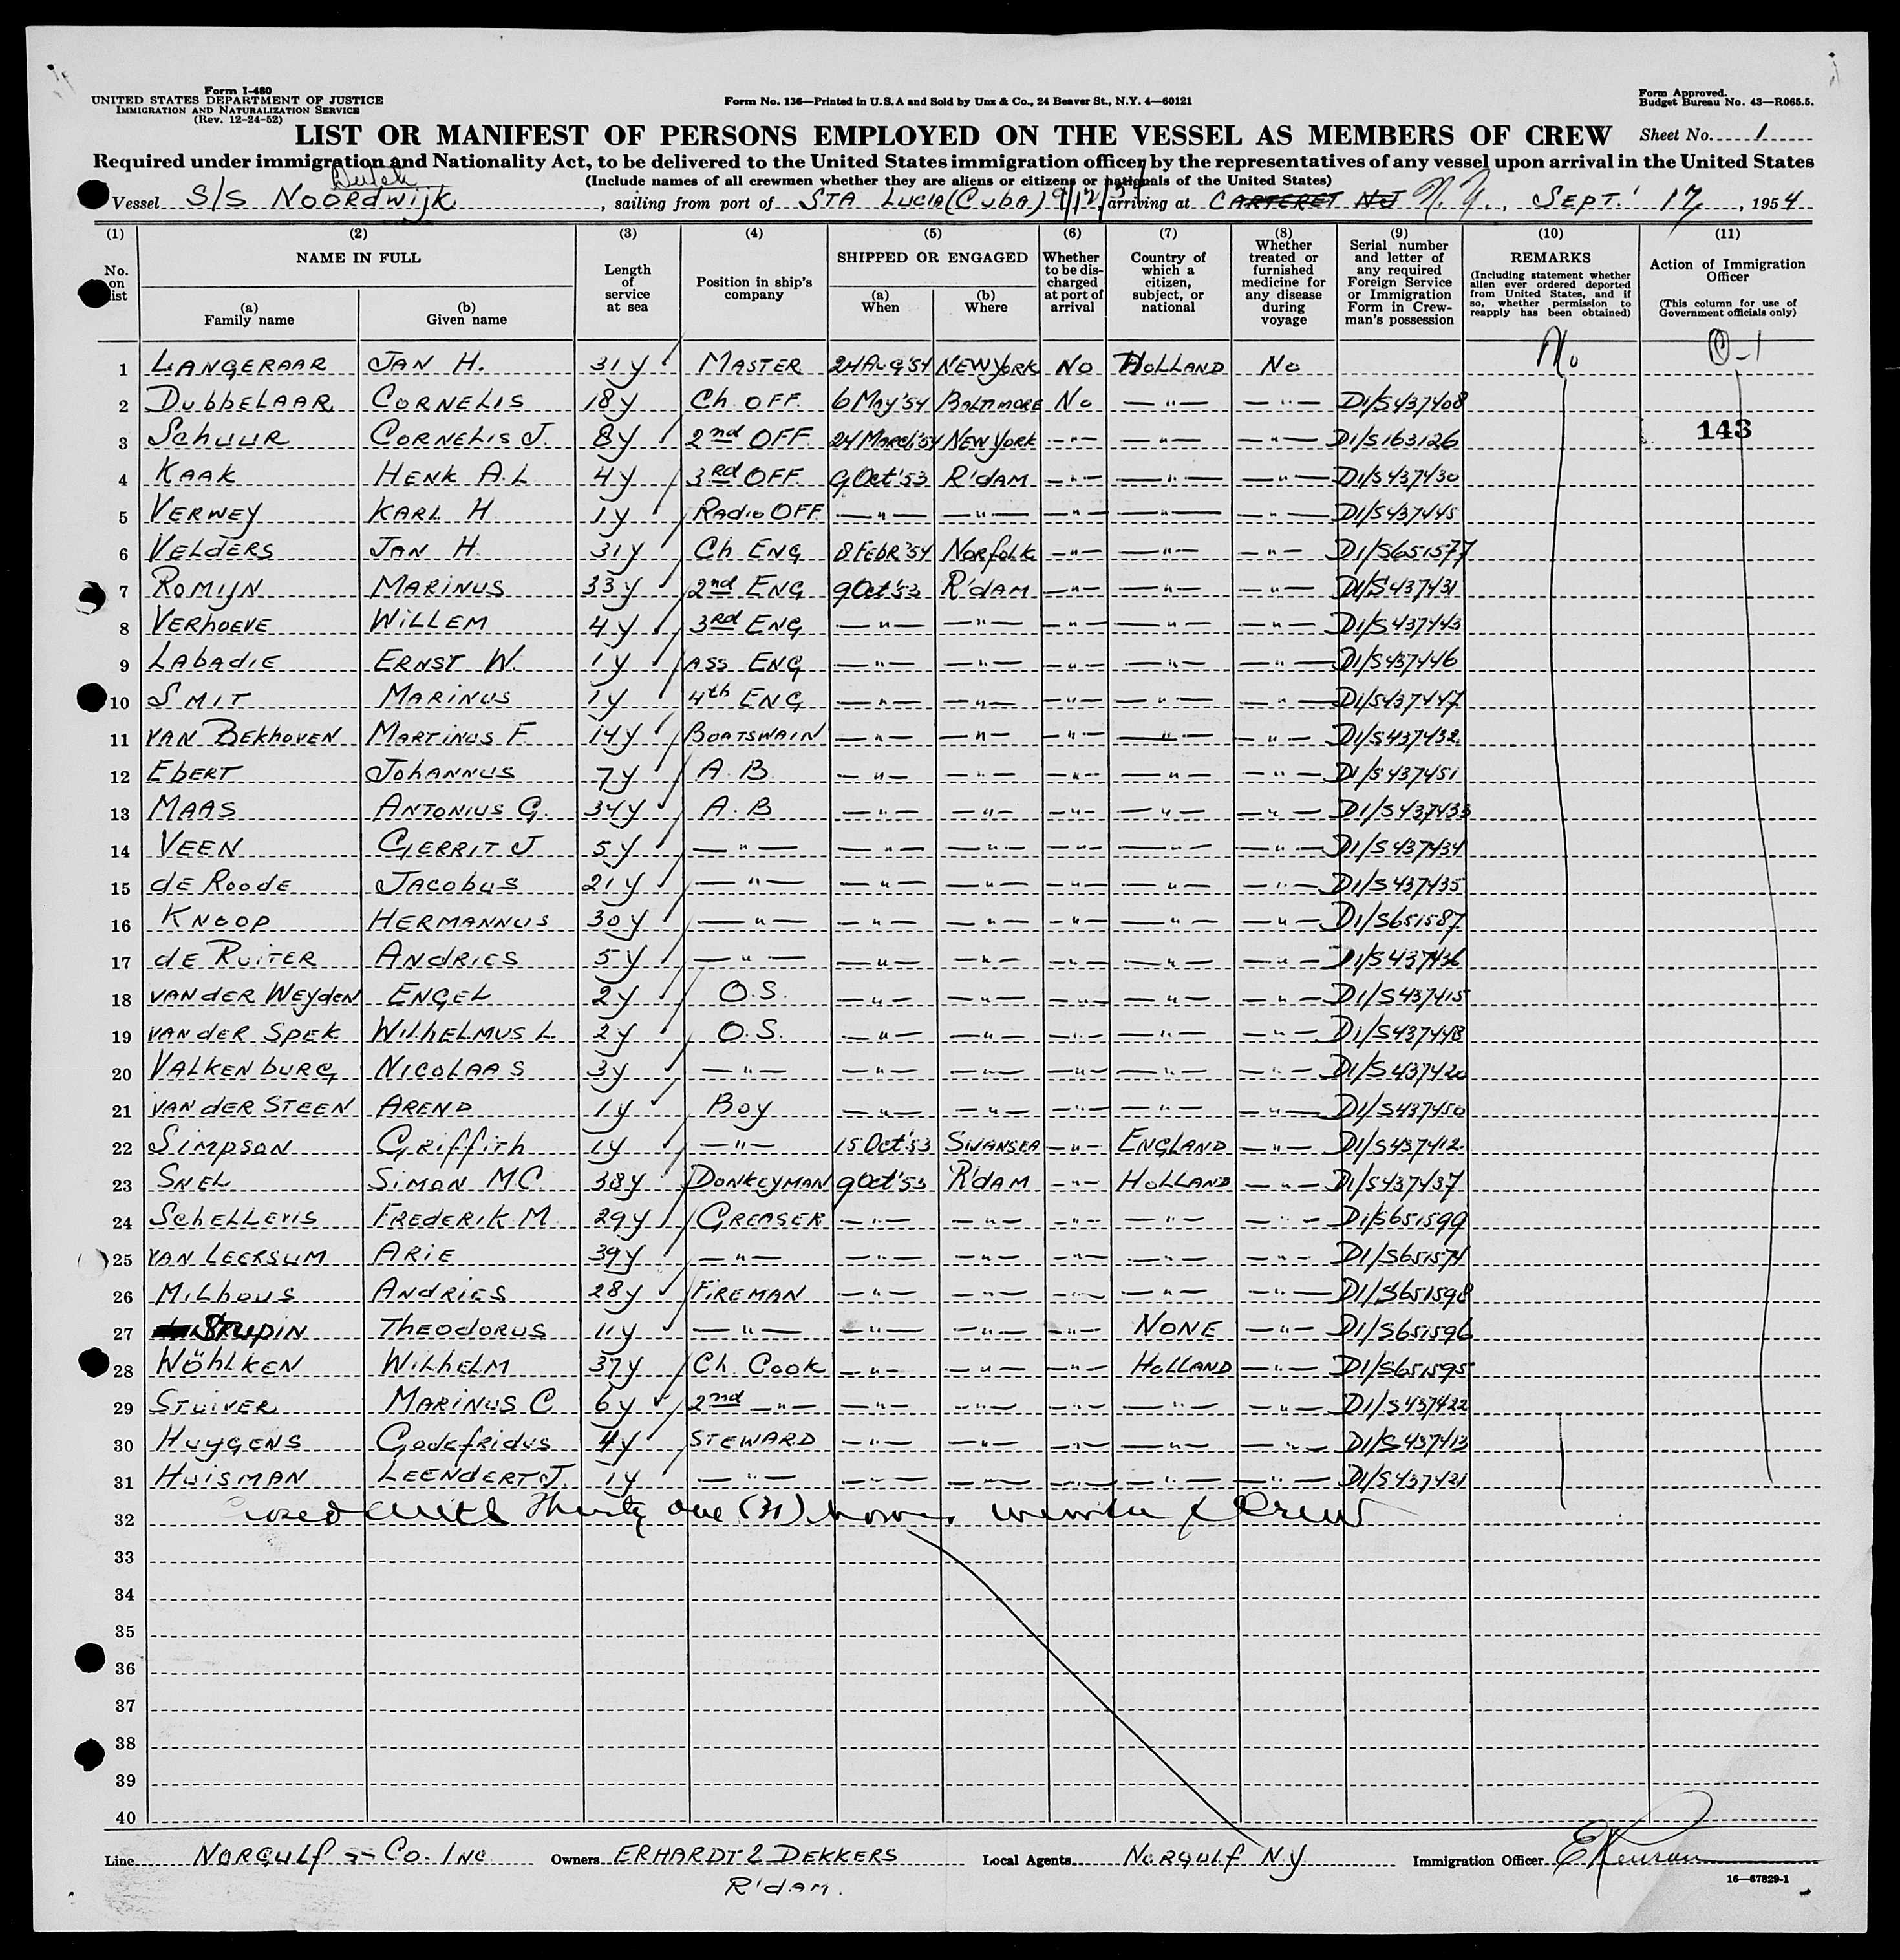 Form I-480
UNITED STATES DEPARTMENT OF JUSTICE
IMMIGRATION AND NATURALIZATION SERVICE
(Rev. 12-24-52)
Form No. 136—Printed in U.S.A and Sold by Unz & Co., 24 Beaver St., N.Y. 4—60121
Form Approved.
Budget Bureau No. 43—R065.5.
LIST OR MANIFEST OF PERSONS EMPLOYED ON THE VESSEL AS MEMBERS OF CREW
Sheet No. 1
Required under immigration and Nationality Act, to be delivered to the United States immigration officer by the representatives of any vessel upon arrival in the United States
(Include names of all crewmen whether they are aliens or citizens or nationals of the United States)
Dutch
Vessel S/S NOORDWIJK, sailing from port of STA LUCIA (CUBA) 9/12/54 arriving at CARTERET NJ N.Y., SEPT. 17, 1954
(1) (2) (3) (4) (5) (6) (7) (8) (9) (10) (11)
No. on list
NAME IN FULL
(a) Family name
(b) Given name
Length of service at sea
Position in ship's company
SHIPPED OR ENGAGED
(a) When
(b) Where
Whether to be discharged at port of arrival
Country of which a citizen, subject, or national
Whether treated or furnished medicine for any disease during voyage
Serial number and letter of any required Foreign Service or Immigration Form in Crewman's possession
REMARKS
(Including statement whether alien ever ordered deported from United States, and if so, whether permission to reapply has been obtained)
Action of Immigration Officer
(This column for use of Government officials only)
1 LANGERAAR JAN H. 31y MASTER 24 AUG'54 NEW YORK No HOLLAND No No O-1
2 DUBBELAAR CORNELIS 18y Ch. OFF. 6 MAY'54 BALTIMORE No —"— —"— D1/S437408
3 SCHUUR CORNELIS J. 8y 2nd OFF. 24 MARCH'54 NEW YORK —"— —"— —"— D1/S163126 143
4 KAAK HENK A.L 4y 3RD OFF. 9 Oct'53 R'DAM —"— —"— —"— D1/S437430
5 VERWEY KARL H. 1y RADIO OFF. —"— —"— —"— —"— —"— D1/S437445
6 VELDERS JAN H. 31y Ch ENG 8 FEBR'54 NORFOLK —"— —"— —"— D1/S651577
7 ROMIJN MARINUS 33y 2nd ENG 9 Oct'53 R'DAM —"— —"— —"— D1/S437431
8 VERHOEVE WILLEM 4y 3RD ENG —"— —"— —"— —"— —"— D1/S437443
9 LABADIE ERNST W. 1y ASS ENG —"— —"— —"— —"— —"— D1/S437446
10 SMIT MARINUS 1y 4th ENG —"— —"— —"— —"— —"— D1/S437447
11 VAN BEKHOVEN MARTINUS F. 14y BOATSWAIN —"— —"— —"— —"— —"— D1/S437432
12 EBERT JOHANNUS 7y A.B. —"— —"— —"— —"— —"— D1/S437451
13 MAAS ANTONIUS G. 34y A.B —"— —"— —"— —"— —"— D1/S437433
14 VEEN GERRIT J 5y —"— —"— —"— —"— —"— —"— D1/S437434
15 DE ROODE JACOBUS 21y —"— —"— —"— —"— —"— —"— D1/S437435
16 KNOOP HERMANNUS 30y —"— —"— —"— —"— —"— —"— D1/S651587
17 DE RUITER ANDRIES 5y —"— —"— —"— —"— —"— —"— D1/S437436
18 VAN DER WEYDEN ENGEL 2y O.S. —"— —"— —"— —"— —"— D1/S437415
19 VAN DER SPEK WILHELMUS L. 2y O.S. —"— —"— —"— —"— —"— D1/S437448
20 VALKENBURG NICOLAAS 3y —"— —"— —"— —"— —"— —"— D1/S437420
21 VAN DER STEEN AREND 1y BOY —"— —"— —"— —"— —"— D1/S437450
22 SIMPSON GRIFFITH 1y —"— 15 Oct'53 SWANSEA —"— ENGLAND —"— D1/S437412
23 SNEL SIMON M.C. 38y DONKEYMAN 9 Oct'53 R'DAM —"— HOLLAND —"— D1/S437437
24 SCHELLEVIS FREDERIK M. 29y GREASER —"— —"— —"— —"— —"— D1/S651599
25 VAN LEERSUM ARIE 39y —"— —"— —"— —"— —"— —"— D1/S651574
26 MILHOUS ANDRIES 28y FIREMAN —"— —"— —"— —"— —"— D1/S651598
27 STRUPIN THEODORUS 11y —"— —"— —"— —"— NONE —"— D1/S651596
28 WÖHLKEN WILHELM 37y Ch. COOK —"— —"— —"— HOLLAND —"— D1/S651595
29 STUIVER MARINUS C 6y 2nd —"— —"— —"— —"— —"— —"— D1/S437422
30 HUYGENS GODEFRIDUS 4y STEWARD —"— —"— —"— —"— —"— D1/S437413
31 HUISMAN LEENDERT J. 1y —"— —"— —"— —"— —"— —"— D1/S437421
32 Closed with Thirty one (31) crew
33
34
35
36
37
38
39
40
Line NORGULF Co. INC Owners ERHARDT & DEKKERS Local Agents NORGULF N.Y Immigration Officer
R'DAM.
16—67829-1